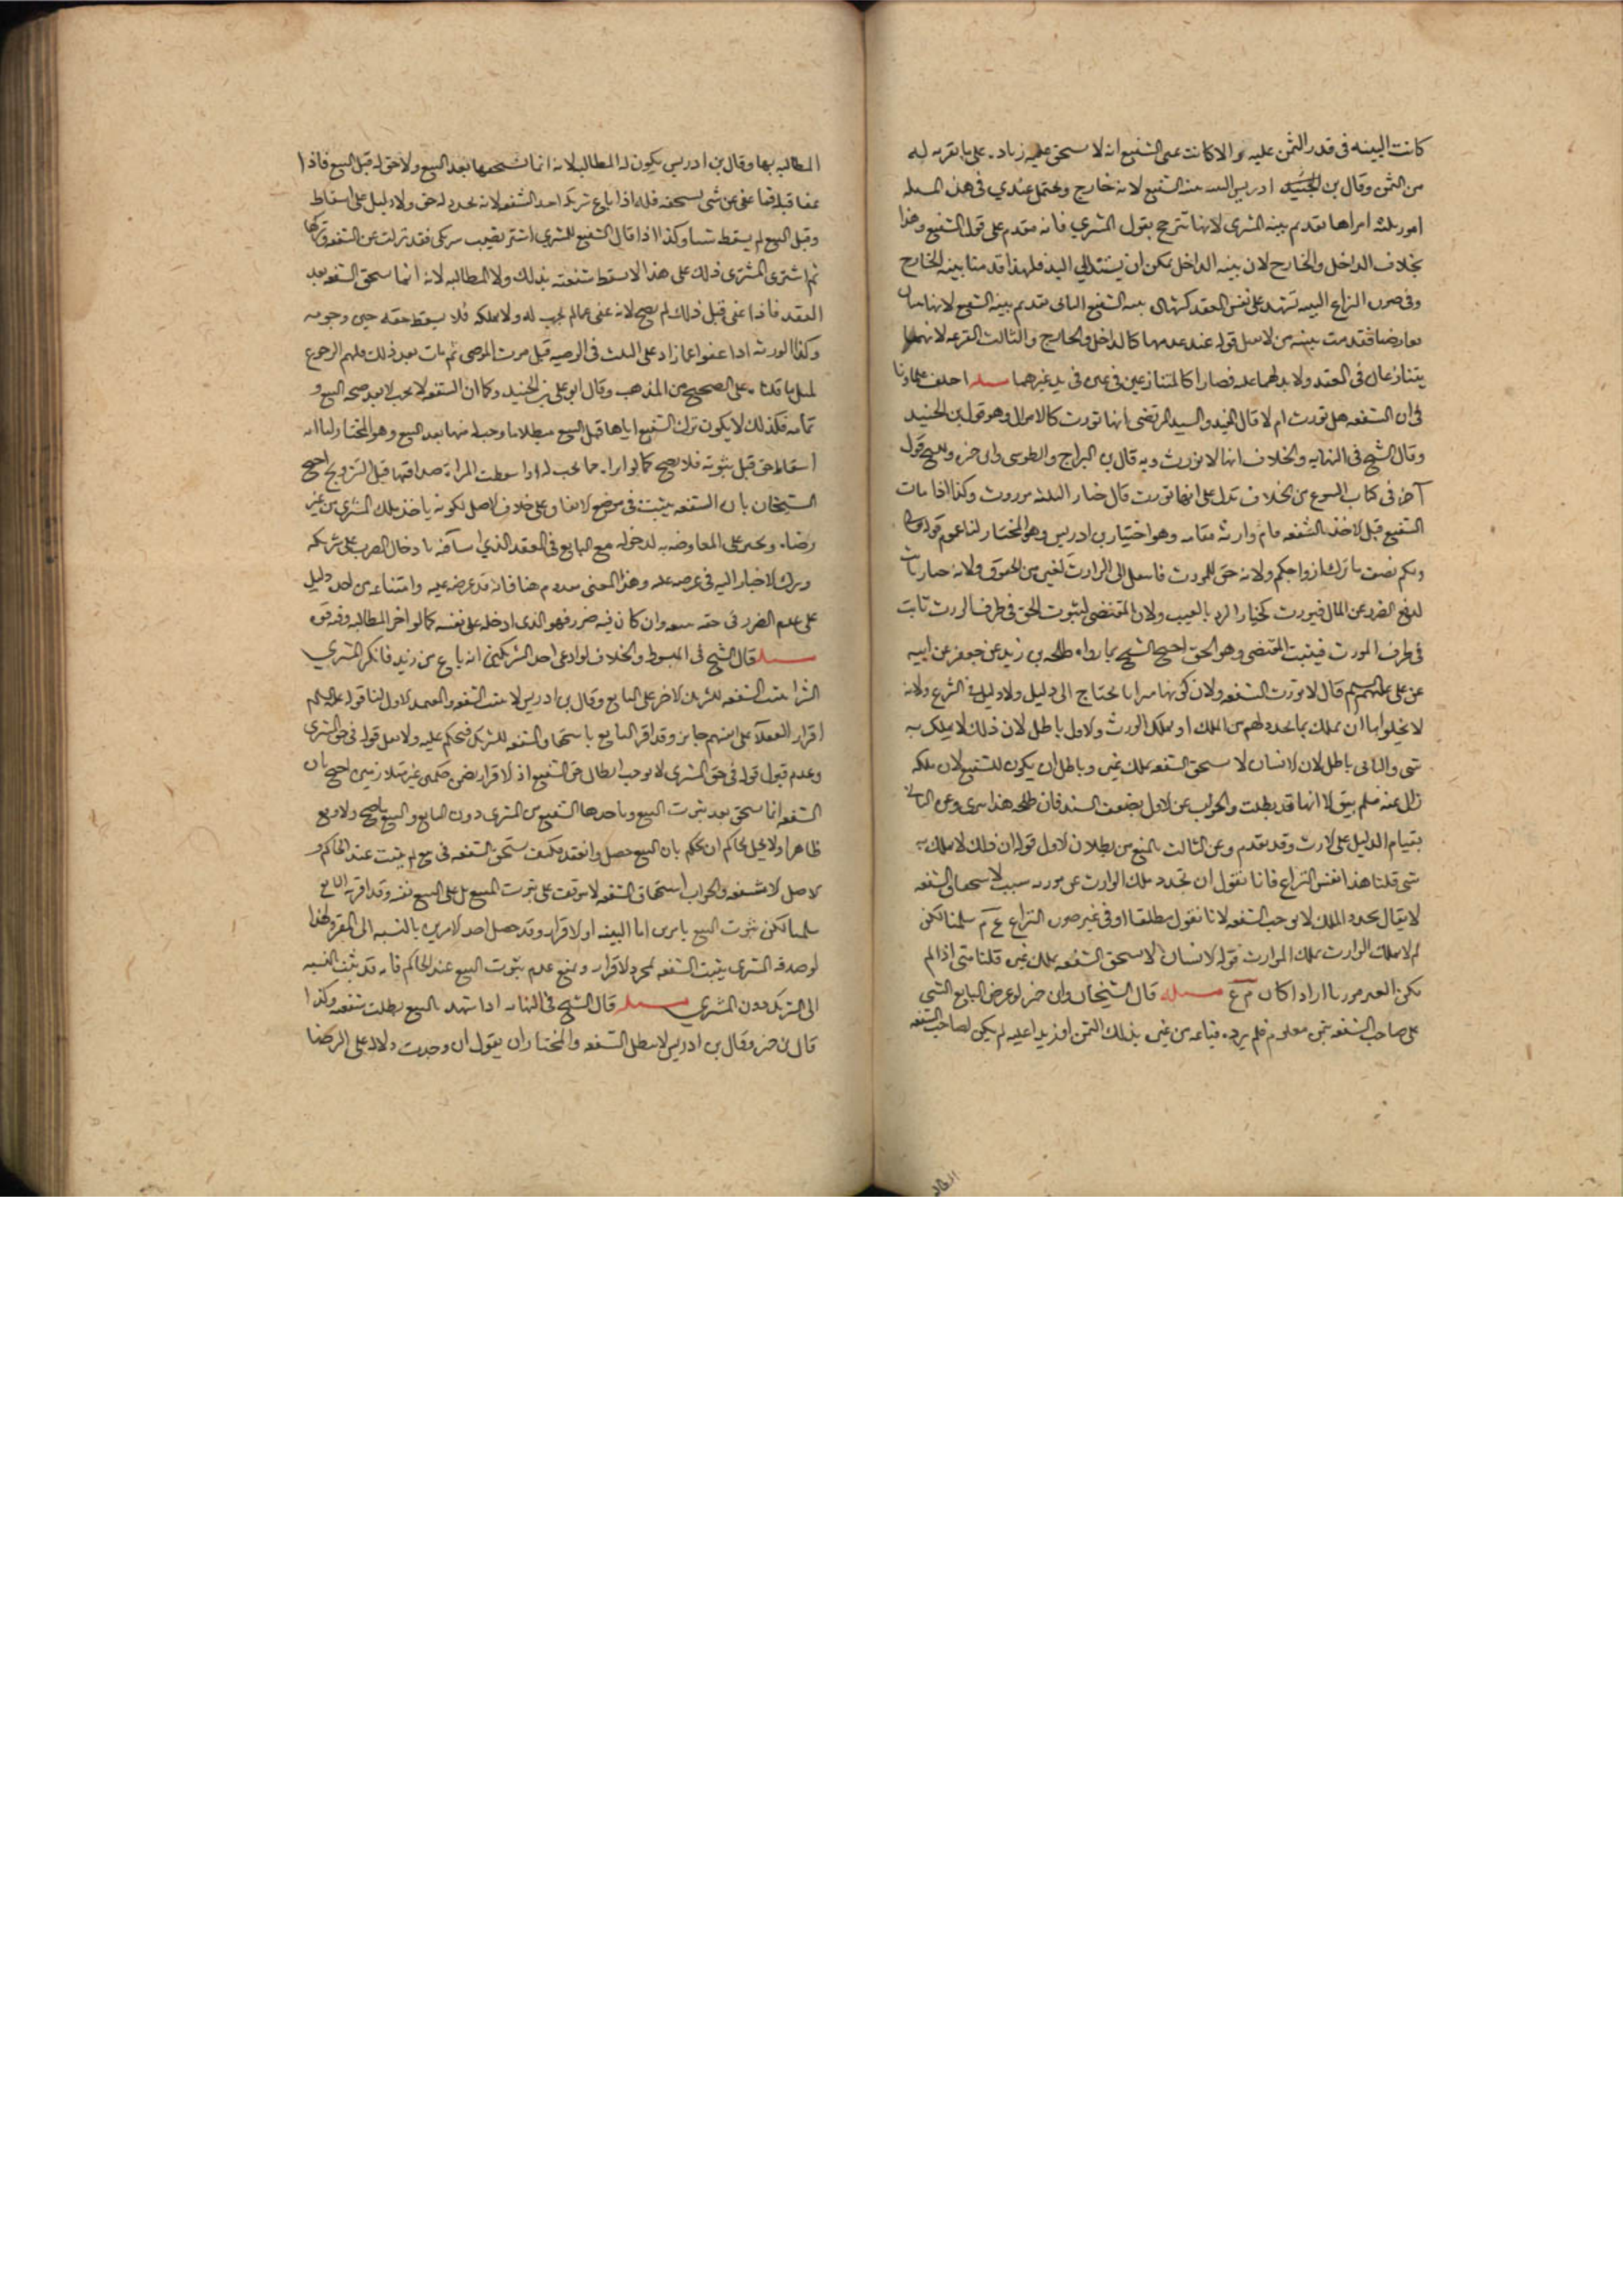 كانت البينه فى قدر الثمن عليه والا كانت على الشفيع انه لا يستحق عليه زياده على ما يقر به له
من الثمن وقال بن الجنيد ادريس البينه بينه الشفيع لانه خارج ويحتمل عندي فى هذه المسله
امور ثلثه احدها تقديم بينه المشترى لانها تترجح بقول المشتري فانه مقدم على قول الشفيع وهذا
بخلاف الداخل والخارج لان بينه الداخل يمكن ان يستند الى اليد فلهذا قدمنا بينه الخارج
وفى صوره النزاع البينه تشهد على نفس العقد كشهاده بينه الشفيع الثانى تقديم بينه الشفيع لانهما
تعارضا فقدمت بينه من لا يقبل قوله عند عدمها كالداخل والخارج والثالث القرعه لانهما
يتنازعان فى العقد ولا يد لهما عليه فصارا كالمتنازعين فى عين فى يد غيرهما مسله اختلف علماونا
فى ان الشفعه هل تورث ام لا قال المفيد والسيد المرتضى انها تورث كالاموال وهو قول بن الجنيد
وقال الشيخ فى النهايه والخلاف انها لا تورث وبه قال بن البراج والطوسى وابن حمزه وللشيخ قول
آخر فى كتاب البيوع من الخلاف يدل على انها تورث قال خيار الثلثه موروث وكذا اذا مات
الشفيع قبل الاخذ بالشفعه قام وارثه مقامه وهو اختيار بن ادريس وهو المختار لنا عموم قوله تعالى
ولكم نصف ما ترك ازواجكم ولانه حق للمورث فانتقل الى الوارث كغيره من الحقوق ولانه خيار ثابت
لدفع الضرر عن المال فيورث كخيار الرد بالعيب ولان المقتضى لثبوت الحق فى طرف الوارث ثابت
فى طرف المورث فيثبت المقتضى وهو الحق احتج الشيخ بما رواه طلحه بن زيد عن جعفر عن ابيه
عن على عليهم السلم قال لا تورث الشفعه ولان كونها ميراثا يحتاج الى دليل ولا دليل فى الشرع ولانه
لا يخلوا اما ان يملك بما يتجدد لهم من الملك او بملك المورث والاول باطل لان ذلك لا يملك به
شى والثانى باطل لان الانسان لا يستحق الشفعه بملك غيره وباطل ان يكون للشفيع لان ملكه
زال عنه فلم يبق الا انها قد بطلت والجواب عن الاول بضعف السند فان طلحه هذا بترى وعن الثانى
بقيام الدليل على الارث وقد تقدم وعن الثالث بالمنع من بطلان الاول قوله ان ذلك لا يملك به
شى قلنا هذا نفس النزاع فانا نقول ان تجدد ملك الوارث عن مورثه سبب لاستحقاق الشفعه
لا يقال تجدد الملك لا يوجب الشفعه لانا نقول مطلقا او فى غير صوره النزاع ع م سلمنا لكن
لم لا يملك الوارث بملك الموارث قوله الانسان لا يستحق الشفعه بملك غيره قلنا متى اذا لم
يكن الغير مورثا او اذا كان م ع مسله قال الشيخان وابن حمزه لو عرض البايع الشى
على صاحب الشفعه بثمن معلوم فلم يرده فباعه من غيره بذلك الثمن او زيد اعليه لم يكن لصاحب الشفعه
المطالبه بها وقال بن ادريس يكون له المطالبه لانه انما يستحقها بعد البيع ولا حق له قبل البيع فاذا
عفا قبله فما عفى عن شى يستحقه فله اذا باع شريكه اخذ الشفعه لانه تجدد له حق ولا دليل على اسقاطه
وقبل البيع لم يسقط شيا وكذا اذا قال الشفيع للمشتري اشتر نصيب شريكى فقد نزلت عن الشفعه وتركتها
ثم اشترى المشترى ذلك على هذا لا تسقط شفعته بذلك وله المطالبه لانه انما يستحق الشفعه بعد
العقد فاذا عفى قبل ذلك لم يصح لانه عفى عما لم يجب له ولا يملكه فلا يسقط حقه حين وجوبه
وكذا الورثه اذا عفوا عما زاد على الثلث فى الوصيه قبل موت الموصى ثم مات بعد ذلك فلهم الرجوع
لمثل ما قلناه على الصحيح من المذهب وقال ابو على بن الجنيد وكما ان الشفعه لا يجب الا بعد صحه البيع و
تمامه فكذلك لا يكون ترك الشفيع اياها قبل البيع مبطلا ما وجب له منها بعد البيع وهو المختار لنا انه
اسقاط حق قبل ثبوته فلا يصح كما لو ابراه مما يجب له او اسقطت المراه صداقها قبل التزويج احتج
الشيخان بان الشفعه يثبت فى موضع الاتفاق على خلاف الاصل لكونه ياخذ ملك المشتري من غير
رضاه ويجبر على المعاوضه به لدخوله مع البايع فى العقد الذي اسا فيه بادخال الضرر على شريكه
وترك الاحسان اليه فى عرضه عليه وهذا المعنى معدوم هنا فانه قد عرضه عليه وامتناعه من اخذه دليل
على عدم الضرر فى حقه ببيعه وان كان فيه ضرر فهو الذى ادخله على نفسه كما لو اخر المطالبه وفيه قوه
مسله قال الشيخ فى المبسوط والخلاف لو ادعى احد الشريكين انه باع من زيد فانكر المشتري
الشرا ثبت الشفعه للشريك الاخر على البايع وقال بن ادريس لا يثبت الشفعه والمعتمد الاول لنا قوله عليه السلم
اقرار العقلآ على انفسهم جايز وقد اقر البايع باستحقاق الشفعه للشريك فيحكم عليه ولا يقبل قوله فى حق المشترى
وعدم قبول قوله فى حق المشترى لا يوجب ابطال حق الشفيع اذ الاقرار تضمن حكمين غير متلازمين احتج بان
الشفعه انما تستحق بعد ثبوت البيع وياخذها الشفيع من المشترى دون البايع والبيع ما صح ولا وقع
ظاهرا ولا يحل لحاكم ان يحكم بان البيع حصل وانعقد فكيف تستحق الشفعه فى بيع لم يثبت عند الحاكم و
الاصل لا شفعه والجواب استحقاق الشفعه لا يتوقف على ثبوت المبيع بل على البيع نفسه وقد اقر به البايع
سلمنا لكن ثبوت البيع بامرين اما البينه او الاقرار وقد حصل احد الامرين بالنسبه الى المقر ولهذا
لو صدقه المشترى يثبت الشفعه بمجرد الاقرار ونمنع عدم ثبوت البيع عند الحاكم فانه قد ثبت بالنسبه
الى الشريك دون المشتري مسله قال الشيخ فى النهايه اذا شهد بالبيع بطلت شفعته وكذا
قال بن حمزه وقال بن ادريس لا تبطل الشفعه والمختار ان يقول ان وجدت دلاله على الرضا